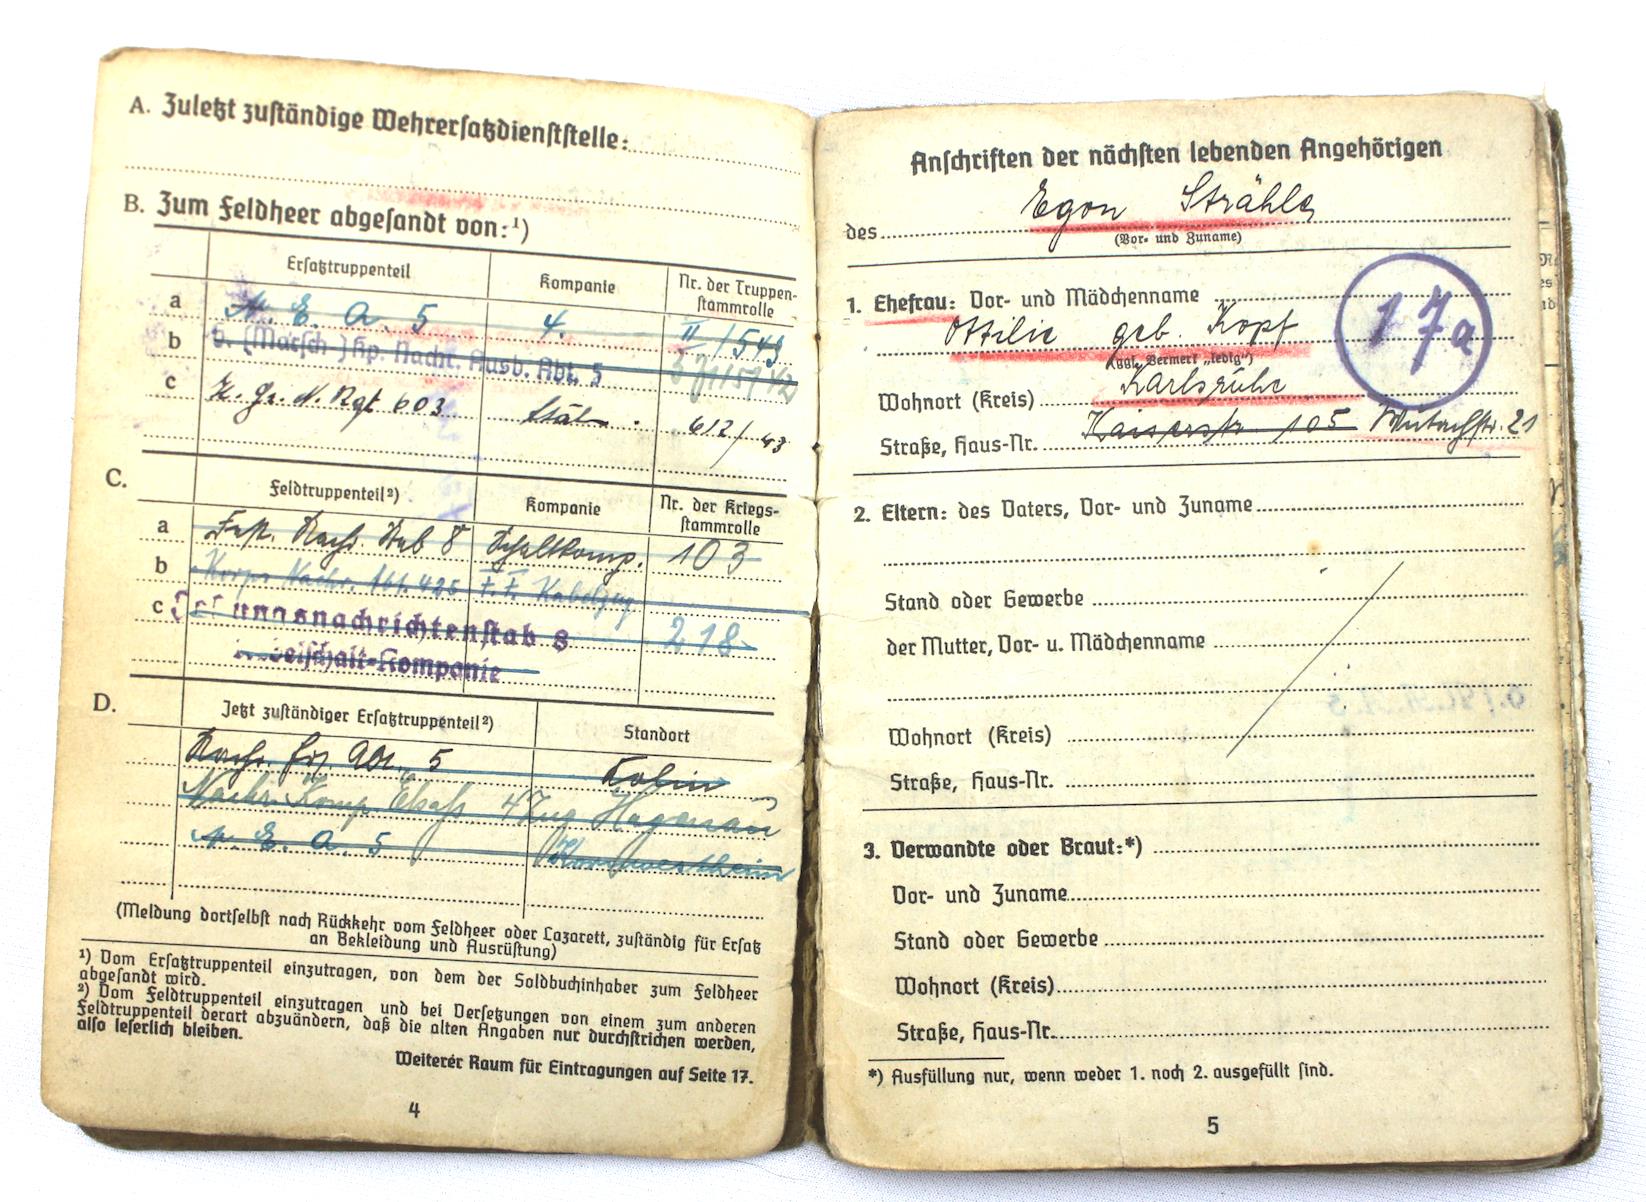 A. Zuletzt zuständige Wehrersatzdienststelle:
B. Zum Feldheer abgesandt von:¹)
Ersatztruppenteil Kompanie Nr. der Truppen-
stammrolle
a N. E. A. 5 4. II/543
b 9. (Marsch-) Kp. Nachr. Ausb. Abt. 5
c z. Gr. N. Rgt 603 612/43
C.
Feldtruppenteil²) Kompanie Nr. der Kriegs-
stammrolle
a Fest. Nachr. Stab 8 Schaltkomp. 103
b Korps Nachr. Abt. 425 F. F. Kabelzug
c ungsnachrichtenstab 8 218
-Kompanie
D.
Jetzt zuständiger Ersatztruppenteil²) Standort
Nachr. Ers. Abt. 5 Kolin
Nachr. Komp. Elsaß 4 Zug Hagenau
N. E. A. 5 Kornwestheim
(Meldung dortselbst nach Rückkehr vom Feldheer oder Lazarett, zuständig für Ersatz
an Bekleidung und Ausrüstung)
¹) Vom Ersatztruppenteil einzutragen, von dem der Soldbuchinhaber zum Feldheer
abgesandt wird.
²) Vom Feldtruppenteil einzutragen und bei Versetzungen von einem zum anderen
Feldtruppenteil derart abzuändern, daß die alten Angaben nur durchstrichen werden,
also leserlich bleiben.
Weiterer Raum für Eintragungen auf Seite 17.
4
Anschriften der nächsten lebenden Angehörigen
des Egon Strähle
(Vor- und Zuname)
1. Ehefrau: Vor- und Mädchenname
Ottilie geb. Kopf
(ggf. Vermerk „ledig“)
17a
Wohnort (Kreis) Karlsruhe
Straße, Haus-Nr. Kaiserstr. 105 21
2. Eltern: des Vaters, Vor- und Zuname
Stand oder Gewerbe
der Mutter, Vor- u. Mädchenname
Wohnort (Kreis)
Straße, Haus-Nr.
3. Verwandte oder Braut:*)
Vor- und Zuname
Stand oder Gewerbe
Wohnort (Kreis)
Straße, Haus-Nr.
*) Ausfüllung nur, wenn weder 1. noch 2. ausgefüllt sind.
5